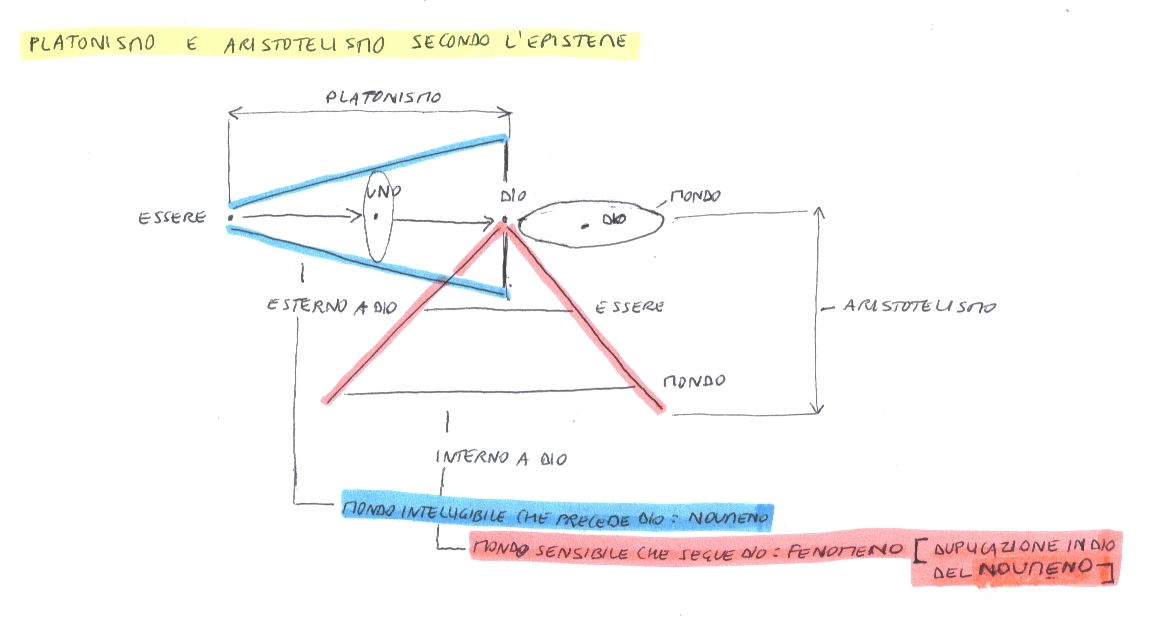 PLATONISMO E ARISTOTELISMO SECONDO L'EPISTEME
PLATONISMO
UNO
DIO
MONDO
ESSERE
DIO
ESTERNO A DIO
ESSERE
ARISTOTELISMO
MONDO
INTERNO A DIO
MONDO INTELLIGIBILE CHE PRECEDE DIO: NOUMENO
MONDO SENSIBILE CHE SEGUE DIO: FENOMENO [DUPLICAZIONE IN DIO
DEL NOUMENO]